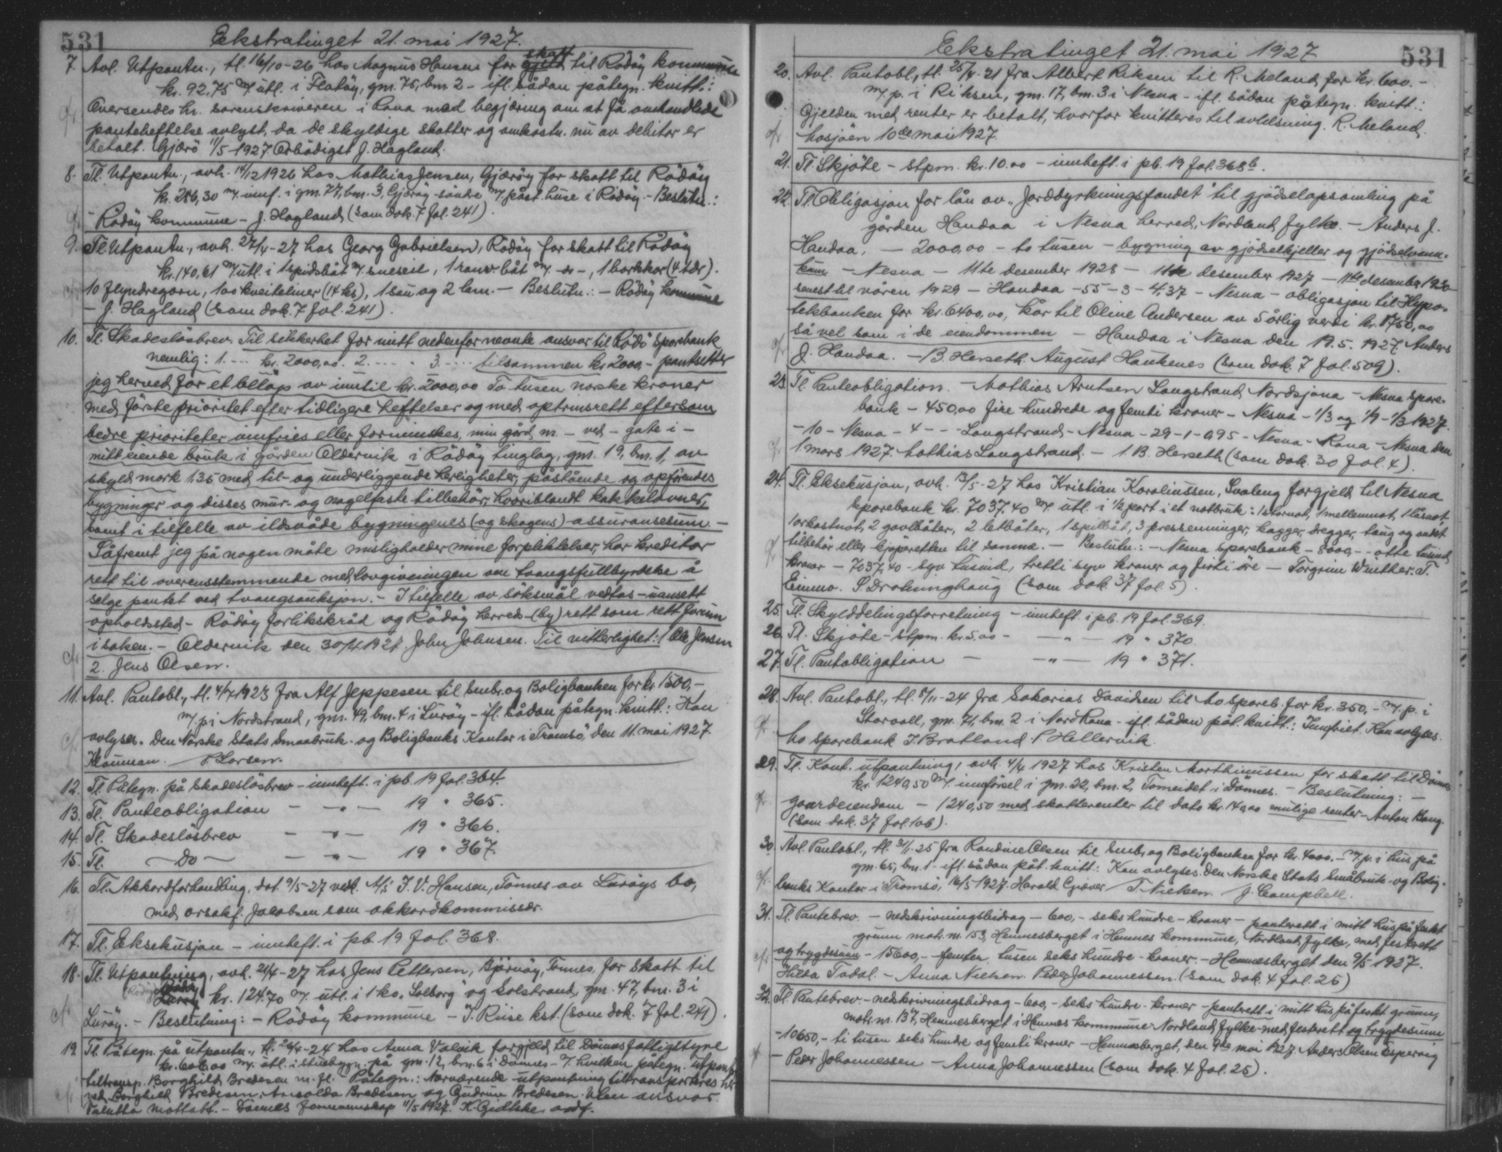 531
Ekstratinget 21. mai 1927.
7. Avl. Utpantn., tl. 16/10-26 hos Magnus Hansen for skatt til Rödöy kommune
kr. 92,75 m/ utl. i Flatöy, gnr. 75, bnr. 2 - ifl. sådan påtegn. kvitt.:
Oversendes hr. sorenskriveren i Rana med begjæring om at få omhandlede
pantsheftelse avlyst, da de skyldige skatter og omkostn. nu av debitor er
betalt. Gjærö 11/5-1927 Ærbödigst J. Hagland.
8. Tl. Utpantn., avh. 14/12 1926 hos Mathias Jensen, Gjæröy for skatt til Rödöy
kr. 286,30 m/ innf. i gnr. 77, bnr. 3 Gjöröy söndre m/ påst. huse i Rödöy - Beslutn.:
- Rödöy kommune - J. Hagland (som dok. 7 fol. 241).
9. Tl. Utpantn., avh. 27/4-27 hos Georg Gabrielsen, Rödöy for skatt til Rödöy
kr. 140,61 m/ utl. i 1 spidsbåt m/ sneseil, 1 båt
10 flyndregarn, 100 kveiteliner (14 kr.), 1 sau og 2 lam. - Beslutn.: - Rödöy kommune
- J. Hagland (som dok. 7 fol. 241).
10. Tl. Skadeslösbrev. Til sikkerhet for mitt nedenfor nevnte ansvar til Rödö Sparebank
nemlig: 1. --- kr. 2000,00. 2. ... 3. ... tilsammen kr. 2000,- pantsetter
jeg herved for et beløp av inntil kr. 2000,00 To tusen norske kroner
med förste prioritet efter tidligere heftelser og med optrinsrett eftersom
bedre prioriteter innfries eller forminskes, min gård nr. - ved - gate i -
mitt eiende bruk i gården Oldervik i Rödöy tinglag, gnr. 19, bnr. 1, av
skyld mark 1.35 med til- og underliggende herligheter, påstående og opföendes
bygninger og disses mur- og nagelfaste tilbehör, hvoriblandt kakkelovner,
samt i tilfelle av ildsvåde bygningenes (og skogens) assuransesum -
Såfremt jeg på nogen måte misligholder mine forpliktelser, har kreditor
rett til overensstemmende med lovgivningen om tvangsfullbyrdelse å
selge pantet ved tvangsauksjon. - I tilfelle av söksmål vedtas - uansett
opholdssted - Rödöy forlikskråd og Rödöy herreds (by) rett som rett forum
i saken. - Oldervik den 30/4 1927 John Johnsen. Til vitterlighet: 1. Ole Jensen
2. Jens Olsen.
11. Avl. Pantobl., tl. 4/7 1923 fra Alf Jeppesen til Småbr. og Boligbanken for kr. 1500,-
m/ p. i Nordstrand, gnr. 49, bnr. 4 i Luröy - ifl. sådan påtegn. kvitt.: Kan
avlyses. Den Norske Stats Smaabruk- og Boligbanks Kontor i Tromsö den 11. mai 1927
Larsen.
12. Tl. Påtegn. på skadeslösbrev - innheft. i pb. 19 fol. 364.
13. Tl. Panteobligation - " - 19 " 365.
14. Tl. Skadeslösbrev - " - 19 " 366.
15. Tl. - Do - - " - 19 " 367.
16. Tl. Akkordforhandling, dat. 9/5-27 vedk. A/s J. V. Hansen, Tonnes av Luröys bo,
med orsakf. Jacobsen som akkordkommissær.
17. Tl. Eksekusjon - innheft. i pb. 19 fol. 368.
18. Tl. Utpantning, avh. 21/4-27 hos Jens Pettersen, Bjørnöy, Tonnes, for skatt til
Rödöy kr. 124.70 m/ utl. i 1 ko "Solborg" og Solstrand, gnr. 47, bnr. 3 i
Luröy. - Beslutning: - Rödöy kommune - J. Riise kst. (som dok. 7 fol. 241).
19. Tl. Påtegn. på utpantn., tl. 26/4-24 hos Anna Valvik for gjeld til Dönnes fattigstyre
kr. 606.00 m/ utl. i stuebygn. på gnr. 12, bnr. 6 i Dönnes - på hvilken påtegn. utpantn.
tiltransp. Borghild Bredesen m. fl. Påtegn.: Nærværende utpantning tiltransporteres
ved Borghild Bredesen, Arnolda Bredesen og Gudrun Bredesen uten ansvar
Valutta mottatt. - Dönnes Formannskap 11/5 1927. K. Gjelteke ordf.
Ekstratinget 21. mai 1927
531
20. Avl. Pantobl., tl. 25/8-21 fra Albert Riksen til R. Meland for kr. 600.-
m/ p. i Riksen, gnr. 17, bnr. 3 i Nesna - ifl. sådan påtegn. kvitt:
Gjelden med renter er betalt, hvorfor kvitteres til avlesning. R. Meland.
Husjöen 10de mai 1927.
21. Tl. Skjöte - stpm. kr. 10.00 - innheft. i pb. 19 fol. 368b.
22. Tl. Obligasjon for lån av "Jorddyrkningsfondet" til gjödseloppsamling på
gården Handaa i Nesna herred, Nordland fylke. - Anders J.
Handaa, - 2000,00 - to tusen - bygning av gjödselkjeller og
- Nesna - 11te desember 1928 - 11te desember 1927 - 11te desember 1928
senest til våren 1929 - Handaa - 55 - 3 - 4,37 - Nesna - obligasjon til Hypo-
tekbanken for kr. 6400,00, kår til Oline Andersen av 5 årlig verdi kr. 1750,00
så vel som i de eiendommen - Handaa i Nesna den 19.5.1927 Anders
J. Handaa. - B. Herseth. August Hankenes (som dok. 7 fol. 509).
23. Tl. Panteobligation. - Mathias Arntsen Langstrand Nordsjona - Nesna spare-
bank - 450,00 fire hundrede og femti kroner - Nesna - 1/3 og 1/9 - 1/3 1927.
- 10 - Nesna - 4 - - - Langstrand - Nesna - 29 - 1 - 0,95 - Nesna - Rana - Nesna den
1 mars 1927 Mathias Langstrand - 1 B. Herseth (som dok. 30 fol. 4).
24. Tl. Eksekusjon, avh. 13/5-27 hos Kristian Karoliussen, Svaleng for gjeld til Nesna
Sparebank kr. 7037.40 m/ utl. i 1/2 part i et notbruk: 1 stornot, 1 mellemnot, 1 låsnot,
1 orkastnot, 2 gavlbåter, 2 letbåter, 1 spilbåt, 3 presenninger, kagger, dregger, taug og andet
tilbehör eller kjöpretten til samme. - Beslutn.: - Nesna sparebank - 8000,- - otte tusind
kroner - 7037.40 - syv tusind, tretti syv kroner og förti öre - Torgrim Winther. T.
Einmo. P. Dronninghaug (som dok. 37 fol. 5).
25. Tl. Skylddelingsforretning - innheft i pb. 19 fol. 369.
26. Tl. Skjöte - stpm. kr. 5.00 - - " - 19 " 370.
27. Tl. Pantobligation - - " - 19 " 371.
28. Avl. Pantobl., tl. 8/11-24 fra Sakarias Daniken til Mo spareb. for kr. 350,- m/ p. i
Storvoll, gnr. 71, bnr. 2 i Nord Rana - ifl. sådan påt. kvitt.: Innfriet. Kan avlyses.
Mo Sparebank J. Bratland P. Hellervik.
29. Tl. Kont. utpantning, avh. 4/4 1927 hos Kristen Morthinussen for skatt til Dönnes
kr. 1240,50 m/ innförsel i gnr. 22, bnr. 2, Tomeidet i Dönnes. - Beslutning: -
gaardeiendom - 1240,50 med skatterenter til dato kr. 14,00 mulige renter - Anton Haug
(som dok. 37 fol. 106).
30. Avl. Pantobl., tl. 3/11-25 fra Randine Olsen til Småbr. og Boligbanken for kr. 4000.- m/ p. i hus på
gnr. 65, bnr. 1 - ifl. sådan påt. kvitt: Kan avlyses. Den Norske Stats Småbruk- og Bolig-
banks Kontor i Tromsö, 16/5-1927. Harald Gjæver J. Nielsen J. Campbell.
31. Tl. Pantebrev. - nedskrivningsbidrag - 600,- seks hundre - kroner - panterett i mitt hus på festet
grunn matr. nr. 153, Hemnesberget i Hemnes kommune, Nordland fylke, med festerett
og trygdesum - 15600,- femten tusen seks hundre - kroner - Hemnesberget den 9/5 1927.
Hilda Todal. - Anna Nielsen Peder Johannessen (som dok. 4 fol. 25)
32. Tl. Pantebrev - nedskrivningsbidrag - 600,- seks hundre - kroner - panterett i mitt hus på festet grunn,
matr. nr. 137, Hemnesberget i Hemnes kommune Nordland fylke - med festerett og trygdesum
- 10650,- ti tusen seks hundre og femti kroner - Hemnesberget, den 9de mai 1927 Anders Olsen Espernig
- Peder Johannessen - Anna Johannessen (som dok. 4 fol. 25).